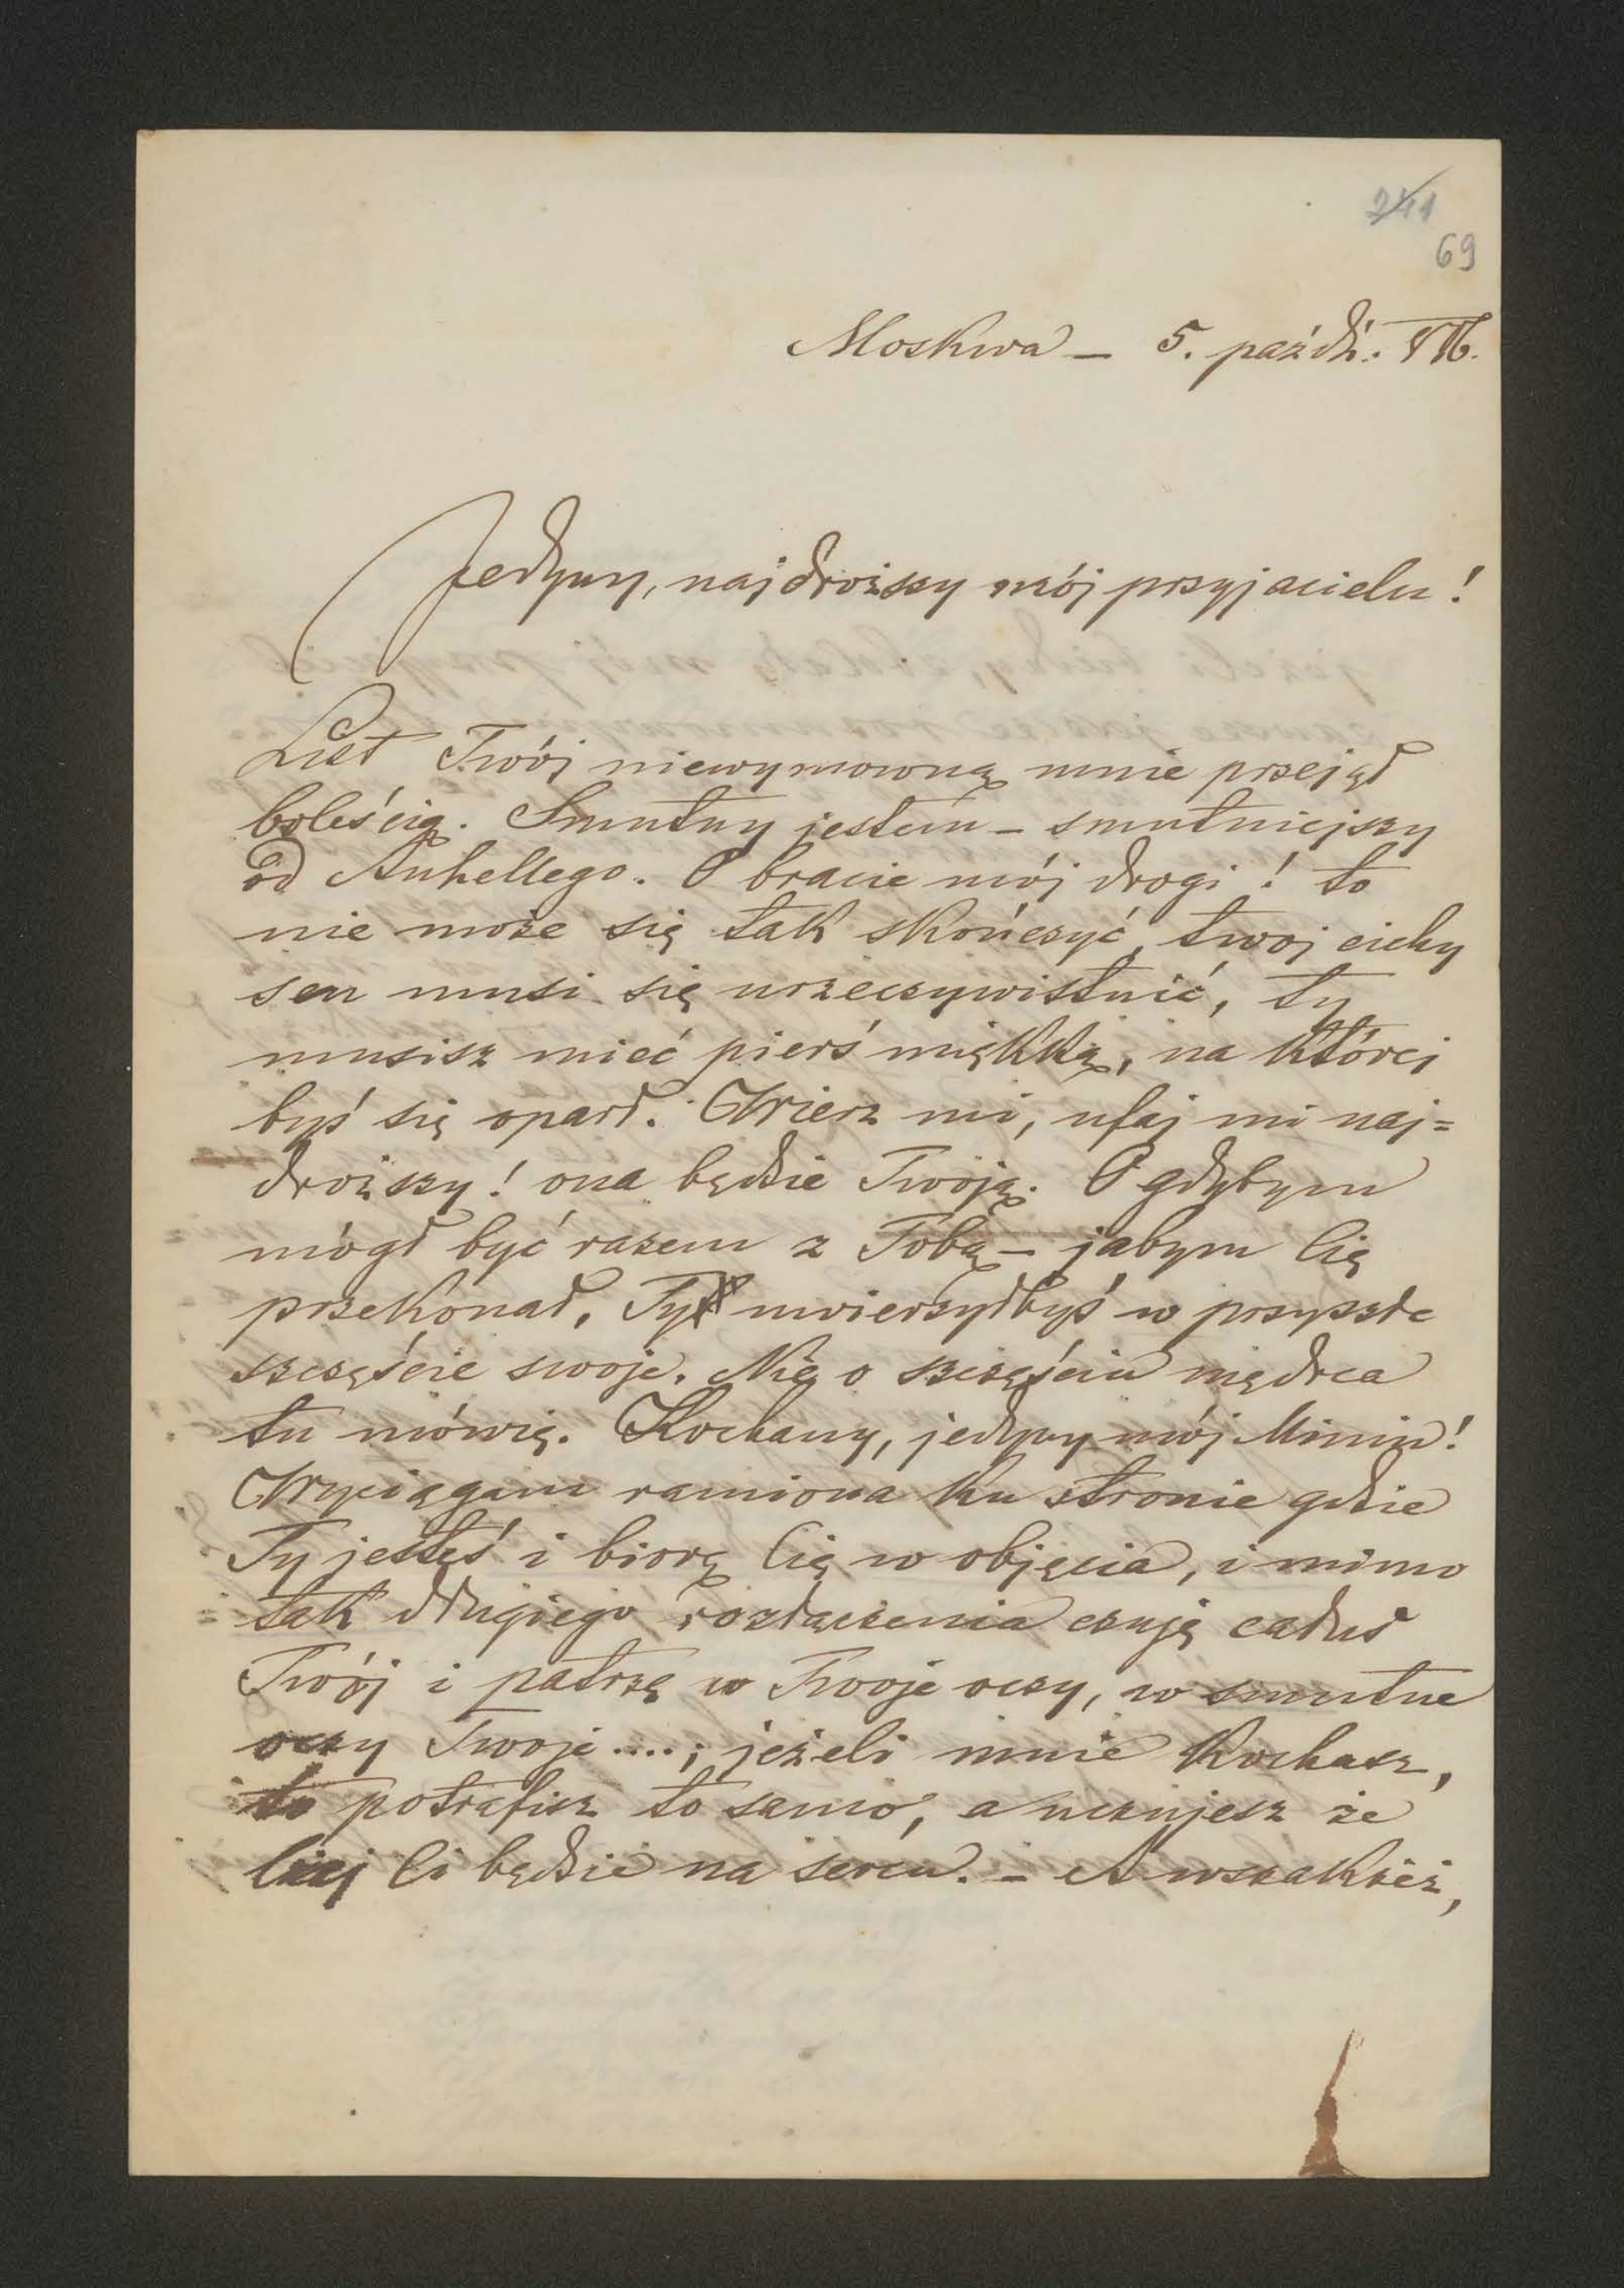 241
69
Moskwa – 5. paźdź.
Jedyny, najdroższy mój przyjacielu!
List Twój niewymowną mnie przejął
boleścią. Smutny jestem – smutniejszy
od Anhellego. O bracie mój drogi! to
nie może się tak skończyć, twoj cichy
sen musi się urzeczywistnić, ty
musisz mieć pierś miękką, na której
byś się oparł. Wierz mi, ufaj mi naj=
droższy! ona będzie Twoją. O gdybym
mógł być razem z Tobą – jabym Cię
przekonał, Ty uwierzyłbyś w przyszłe
szczęście swoje. Nie o szczęściu mędrca
tu mówię. Kochany, jedyny mój Mimin!
Wyciągam ramiona ku stronie gdzie
Ty jesteś i biorę Cię w objęcia, i mimo
tak długiego rozłączenia czuję całus
Twój i patrzę w Twoje oczy, w smutne
oczy Twoje ....; jeżeli mnie kochasz,
to potrafisz to samo, a uczujesz że
lżej Ci będzie na sercu. – A wszakżeż,